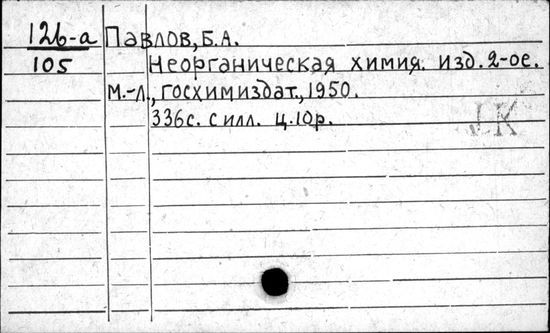 126-а Павлов, Б.А.
105 Неорганическая химия. изд. 2-ое.
М.-Л., Госхимиздат, 1950.
336с. с илл. ц. 10р.
JK